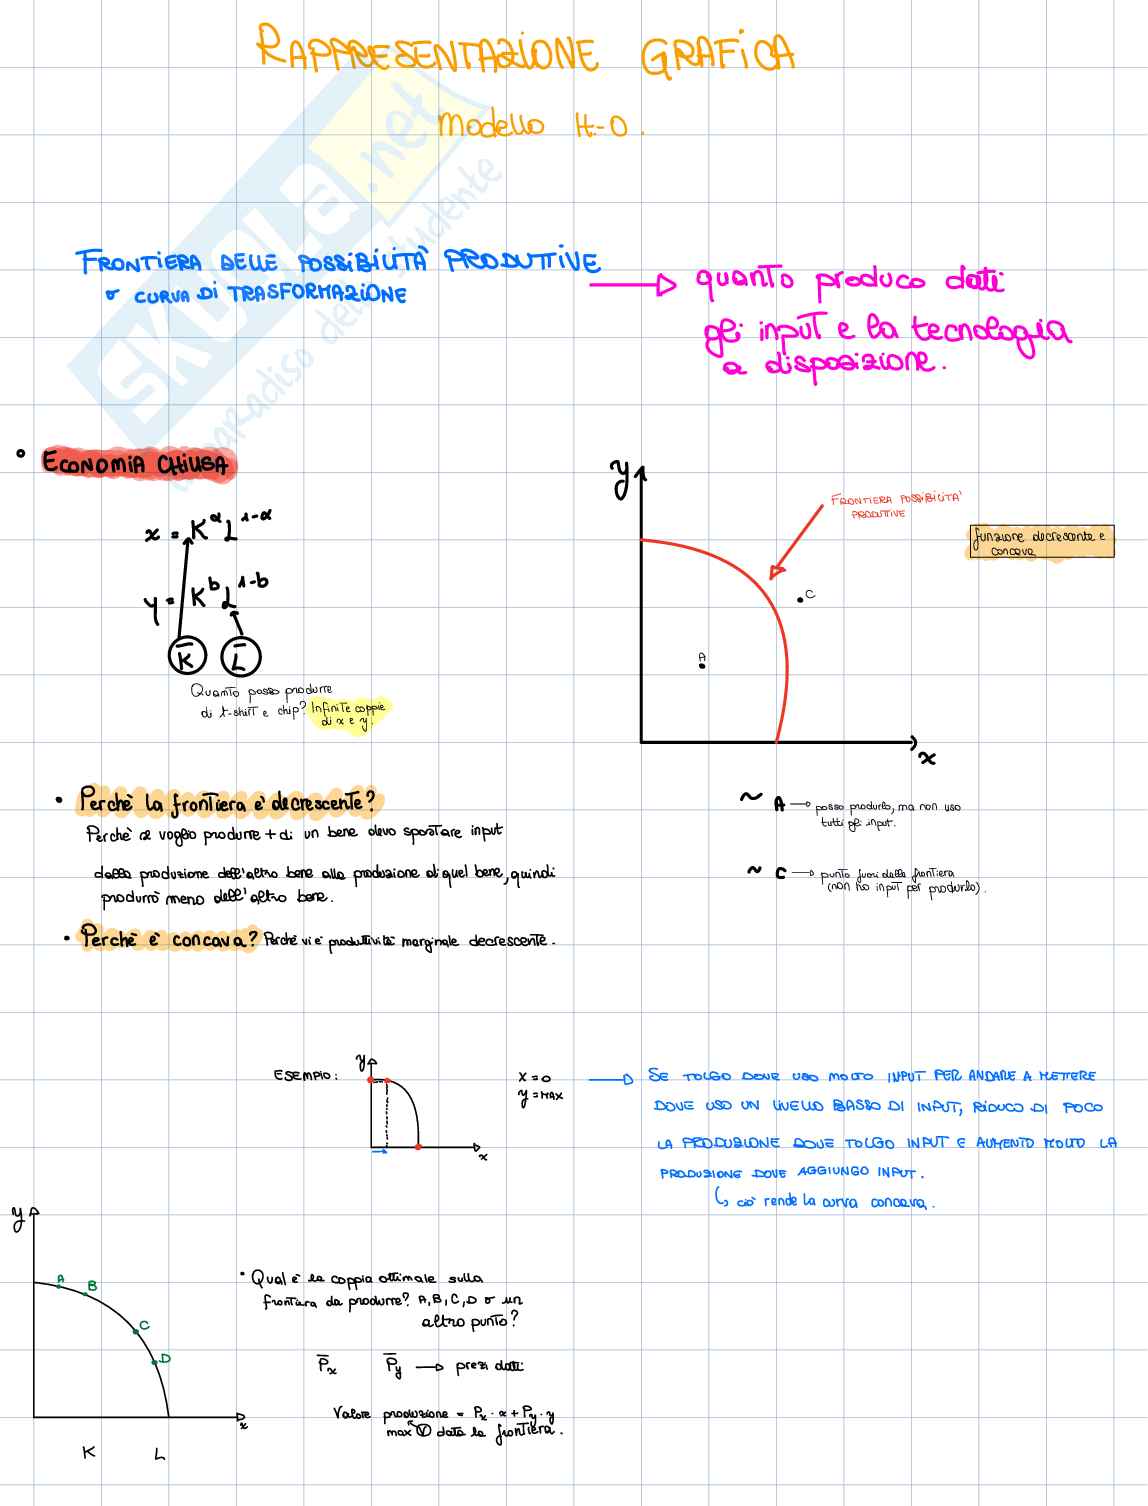 RAPPRESENTAZIONE GRAFICA
Modello H-O.
SKUOLA.net
paradiso dello studente
FRONTIERA DELLE POSSIBILITÀ PRODUTTIVE
o CURVA DI TRASFORMAZIONE
quanto produco dati
gli input e la tecnologia
a disposizione.
ECONOMIA CHIUSA
x = K^α L^1-α
y = K^b L^1-b
K̄ L̄
Quanto posso produrre
di t-shirt e chip? Infinite coppie
di x e y.
y
FRONTIERA POSSIBILITA'
PRODUTTIVE
funzione decrescente e
concava
C
A
x
• Perchè la frontiera è decrescente?
Perchè se voglio produrre + di un bene devo spostare input
dalla produzione dell'altro bene alla produzione di quel bene, quindi
produrrò meno dell'altro bene.
• Perchè è concava? Perchè vi è produttività marginale decrescente.
~ A → posso produrlo, ma non uso
tutti gli input.
~ C → punto fuori dalla frontiera
(non ho input per produrlo).
ESEMPIO:
y
x
x = 0
y = MAX
SE TOLGO DOVE USO MOLTO INPUT PER ANDARE A METTERE
DOVE USO UN LIVELLO BASSO DI INPUT, RIDUCO DI POCO
LA PRODUZIONE DOVE TOLGO INPUT E AUMENTO MOLTO LA
PRODUZIONE DOVE AGGIUNGO INPUT.
↳ ciò rende la curva concava.
y
A
B
C
D
x
K L
• Qual è la coppia ottimale sulla
frontiera da produrre? A, B, C, D o un
altro punto?
P̄x P̄y → prezzi dati
Valore produzione = Px · x + Py · y
max V data la frontiera.